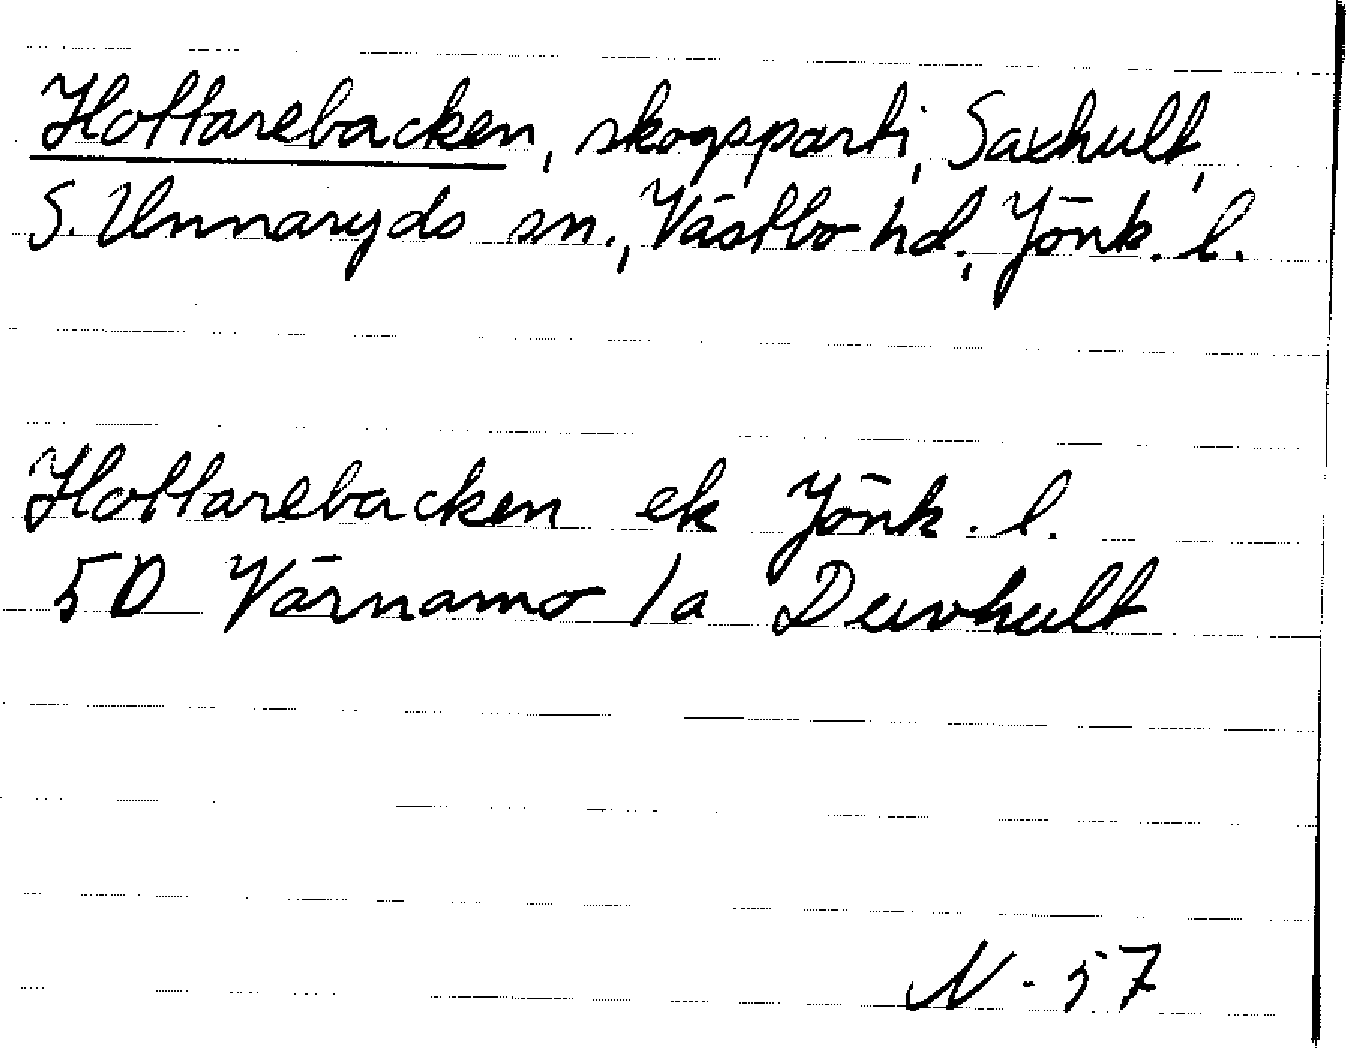 Hottarebacken, skogsparti, Saxhult,
S. Unnaryds sn., Västbo hd., Jönk. l.
Hottarebacken ek Jönk. l.
5D Värnamo 1a Duvhult
N-57